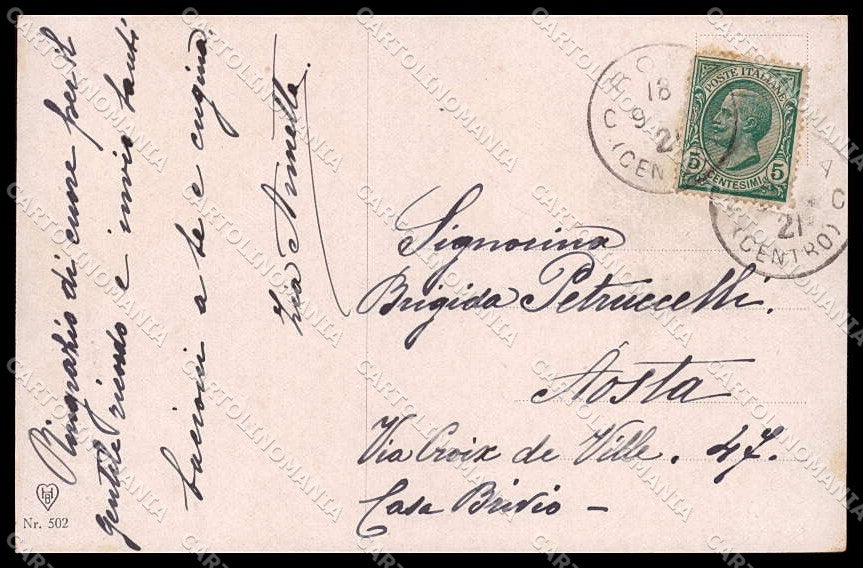 Ringrazio di cuore per il
gentile ricordo e invio tanti
bacioni a te e cugina.
Zia Annetta.
Signorina
Brigida Petruccelli.
Aosta
Via Croix de Ville. 47.
Casa Brivio -
POSTE ITALIANE
5 5
CENTESIMI
18
9 21
(CENTRO)
21
(CENTRO)
HB
Nr. 502
CARTOLINOMANIA